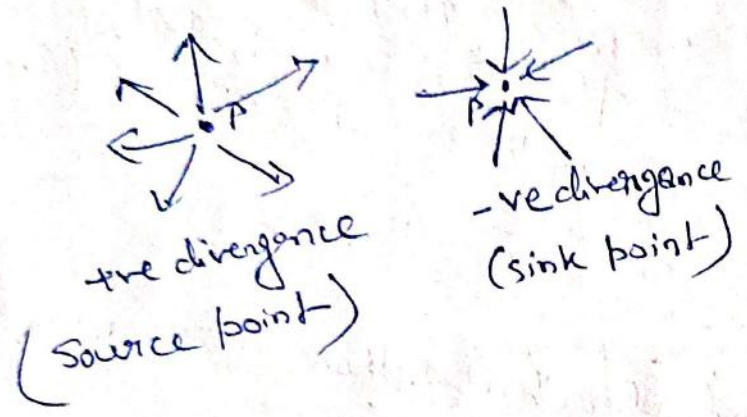 P
+ve divergence
(Source point)
P
-ve divergance
(sink point)